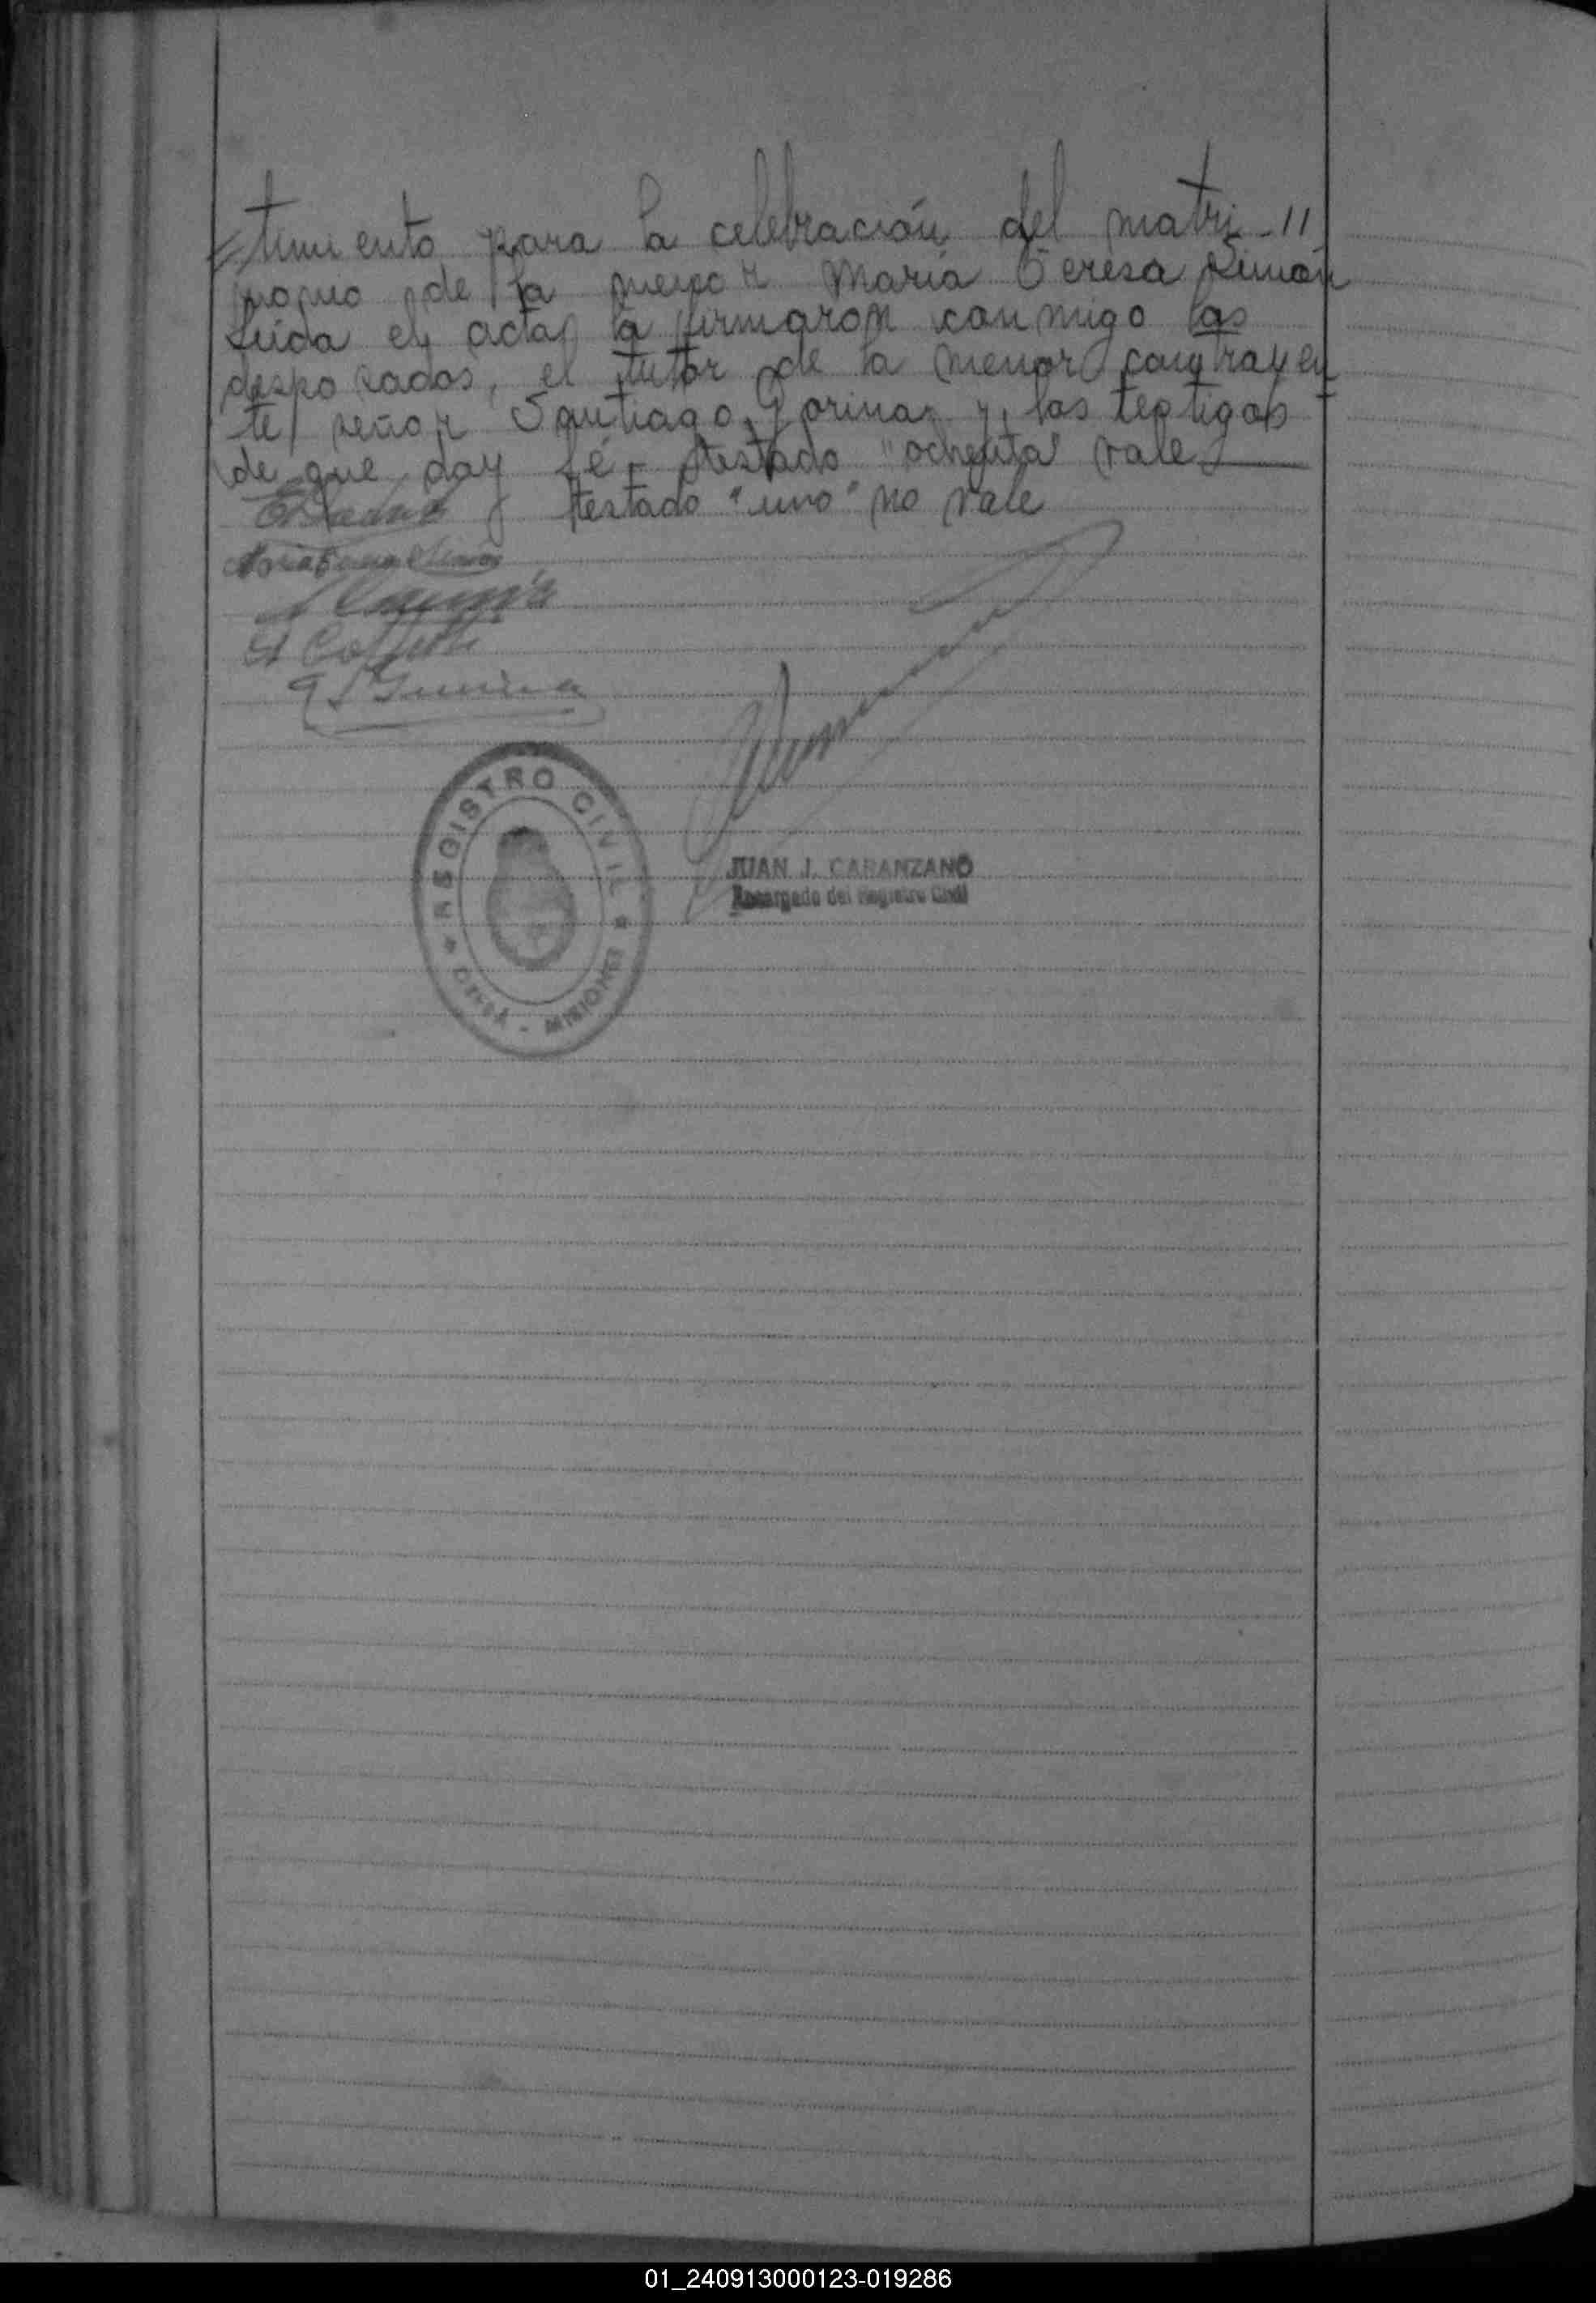 timiento para la celebración del matri-//
monio de la menor María Teresa Simón
Leída el acta, la firmaron conmigo los
desposados, el tutor de la menor contrayen
te señor Santiago Gorina, y los testigos
de que doy fé.- testado "ochenta" vale
testado "uno" no vale
REGISTRO CIVIL
MISIONES
JUAN J. CARANZANO
Encargado del Registro Civil
01_240913000123-019286